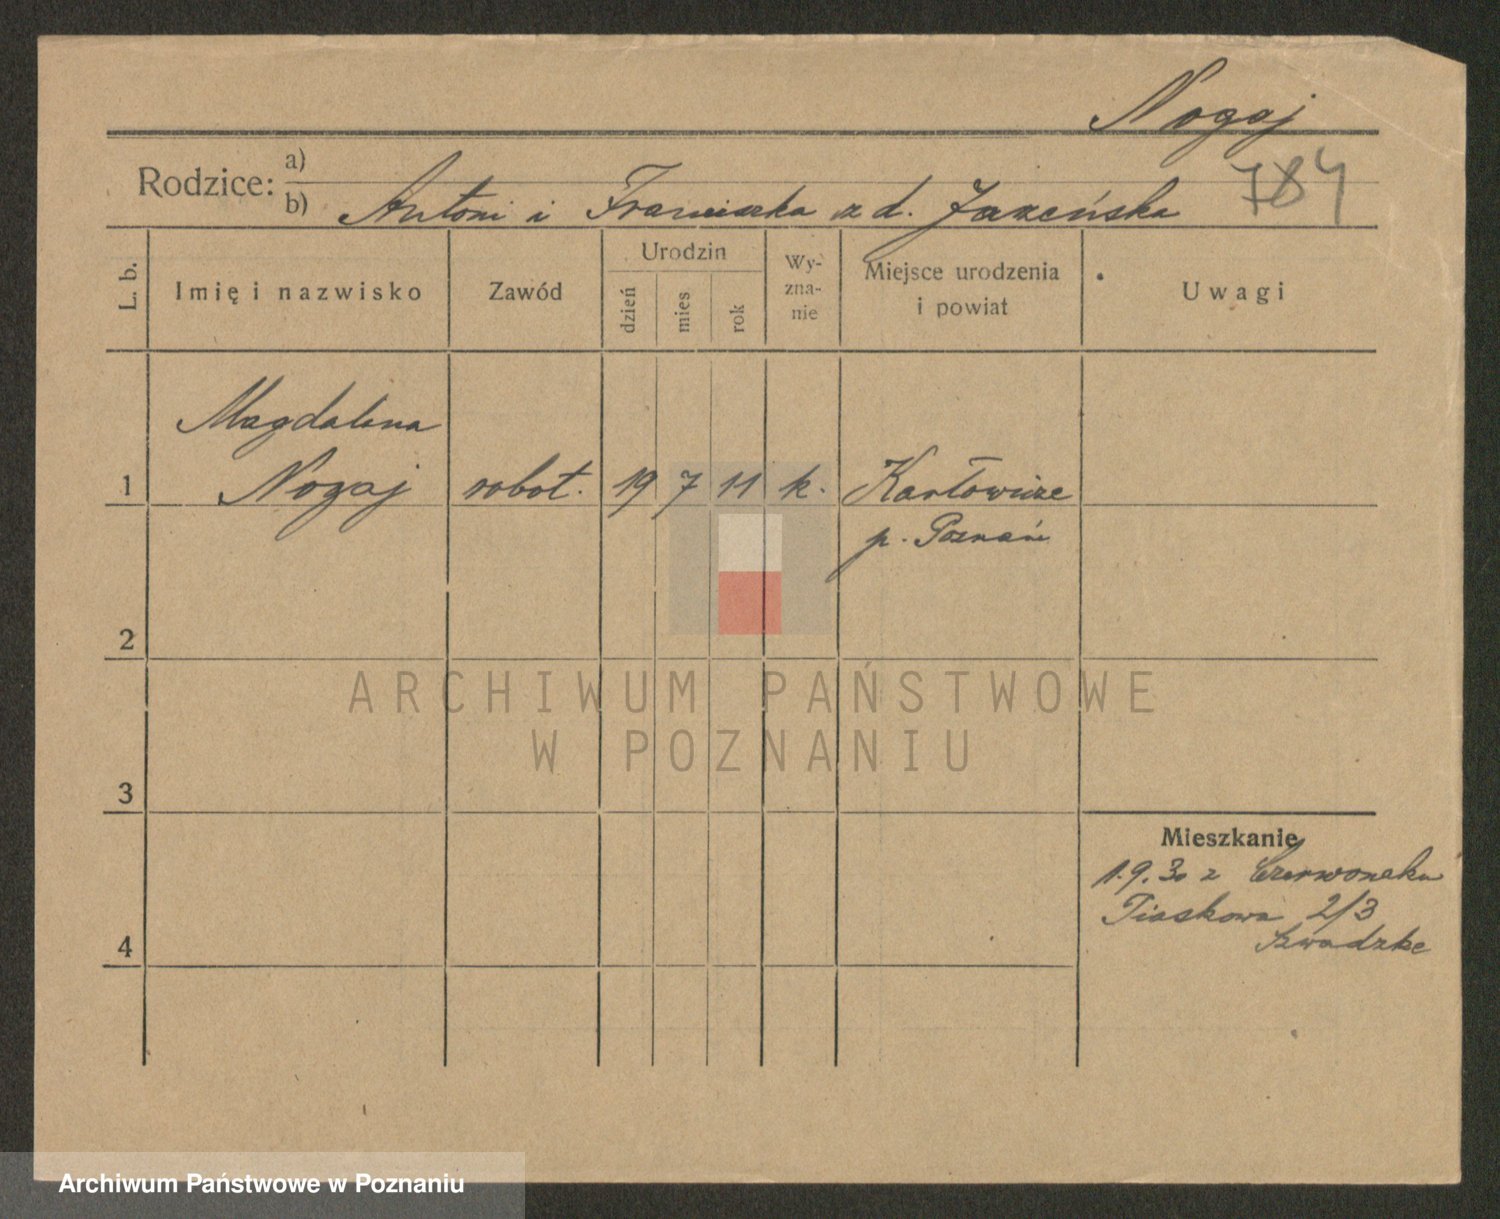 Nogaj
Rodzice:
a)
b) Antoni i Franciszka z d. Jazeńska
784
L. b.
Imię i nazwisko
Zawód
Urodzin
dzień
mies
rok
Wy-
zna-
nie
Miejsce urodzenia
i powiat
Uwagi
Magdalena
1 Nogaj robot. 19 7 11 k. Karłowice
p. Poznań
2
3
4
Mieszkanie
1.9.30 z Czerwonaku
Piaskowa 2/3
ARCHIWUM PAŃSTWOWE
W POZNANIU
Archiwum Państwowe w Poznaniu